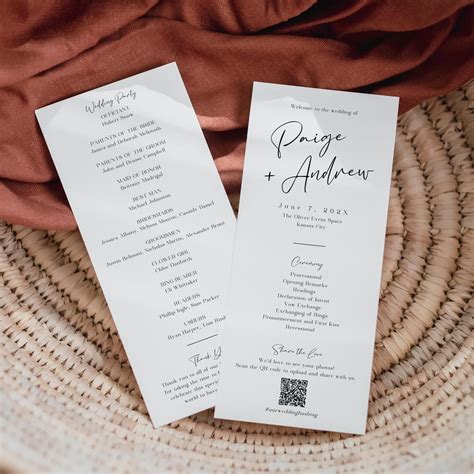 Wedding Party
OFFICIANT
Robert Snow
PARENTS OF THE BRIDE
James and Deborah McIntosh
PARENTS OF THE GROOM
John and Denise Campbell
MAID OF HONOR
Brittany Madrigal
BEST MAN
Michael Johnston
BRIDESMAIDS
Jessica Albany, Melissa Amuese, Cassidy Banes
GROOMSMEN
Justin Belmont, Nicholas Martin, Alexander Benn
FLOWER GIRL
Chloe Danforth
RING BEARER
Eli Whittaker
READERS
Phillip Ingle, Sara Parker
USHERS
Ryan Harper, Tom
Thank
Thank you to all of our
for taking the time to
Welcome to the wedding of
Paige
+ Andrew
June 7, 202X
The Oliver Event Space
Kansas City
Ceremony
Processional
Opening Remarks
Readings
Declaration of Intent
Vow Exchange
Exchanging of Rings
Pronouncement and First Kiss
Recessional
Share the Love
We'd love to see your photos!
Scan the QR code to upload and share with us.
#ourweddinghashtag